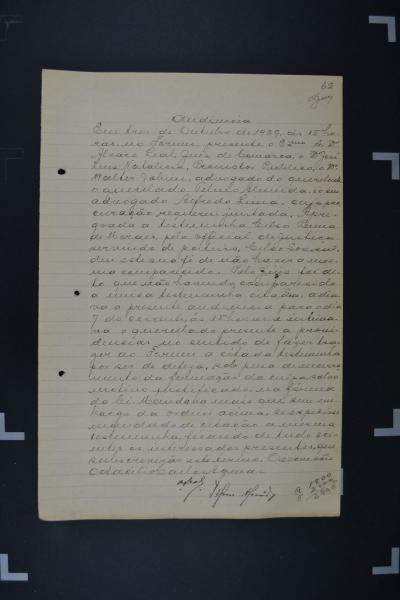 62
Audiencia
Em tres de Outubro de 1929, ás 15 ho-
ras, no Forum, presente o Exmo. Sr. Dr.
Alvaro Leal, Juiz de Comarca, o Dr. José
Luis Natalicio, Promotor Publico, o Dr.
Walter, advogado do querelante
o querelado Almeida, com
advogado Alfredo, cuja pro-
curação requereu juntada. Apre-
goada a testemunha Celso
de Moraes, pelo official de Justiça
servindo de porteiro,
deu este sua fé de não haver a mes-
ma comparecido. Pelo Juiz foi di-
to que não havendo comparecido
a unica testemunha citada, adia-
va a presente audiencia para o dia
7 do corrente, ás 15 horas, e intima-
va o querelado presente a provi-
denciar no sentido de fazer tra-
zer ao Forum a citada testemunha
por ser de defeza, sob pena de encerra-
mento da formação da culpa, salvo
motivo justificado na forma
da lei. Mandava mais que, sem em-
bargo da ordem acima, se expedisse
mandado de citação a mesma
testemunha, ficando de tudo sci-
entes os interessados presentes, que
subscreverão este termo. O escrivão
Octacilio Aguiar